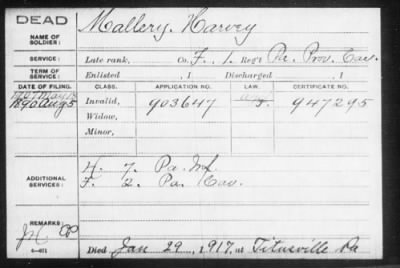 DEAD
NAME OF SOLDIER: Mallery, Harvey
SERVICE: Late rank, Co. F., 1. Reg't Pa. Prov. Cav.
TERM OF SERVICE: Enlisted , 1 Discharged , 1
DATE OF FILING. CLASS. APPLICATION NO. LAW. CERTIFICATE NO.
1890 Aug 5 Invalid, 903647 947295
Widow,
Minor,
ADDITIONAL SERVICES: H. 7. Pa. Inf.
F. 2. Pa. Cav.
REMARKS:
Died Jan 29, 1917, at Titusville Pa